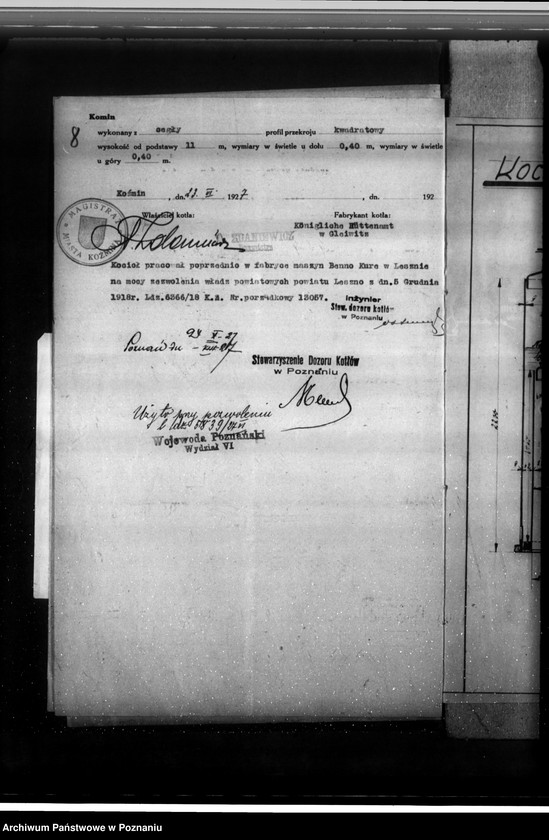 8
Komin
wykonany z cegły profil przekroju kwadratowy
wysokość od podstawy 11 m, wymiary w świetle u dołu 0,40 m, wymiary w świetle
u góry 0,40 m.
Koźmin, dn. 23. VI. 1927, dn. 192
Właściciel kotła: Fabrykant kotła:
MAGISTRAT
MIASTA KOŹMINA
Königliche Hüttenamt
w Gleiwitz
Kocioł pracował poprzednio w fabryce maszyn Benno Kure w Lesznie
na mocy zezwolenia władz powiatowych powiatu Leszno z dn.5 Grudnia
1918r. Ldz.6366/18 K.A. Nr.porządkowy 13057.
Inżynier
Stow. dozoru kotłów
w Poznaniu
Poznań dn
Stowarzyszenie Dozoru Kotłów
w Poznaniu
Użyto przy pozwoleniu
Wojewoda Poznański
Wydział VI
KOC
Archiwum Państwowe w Poznaniu